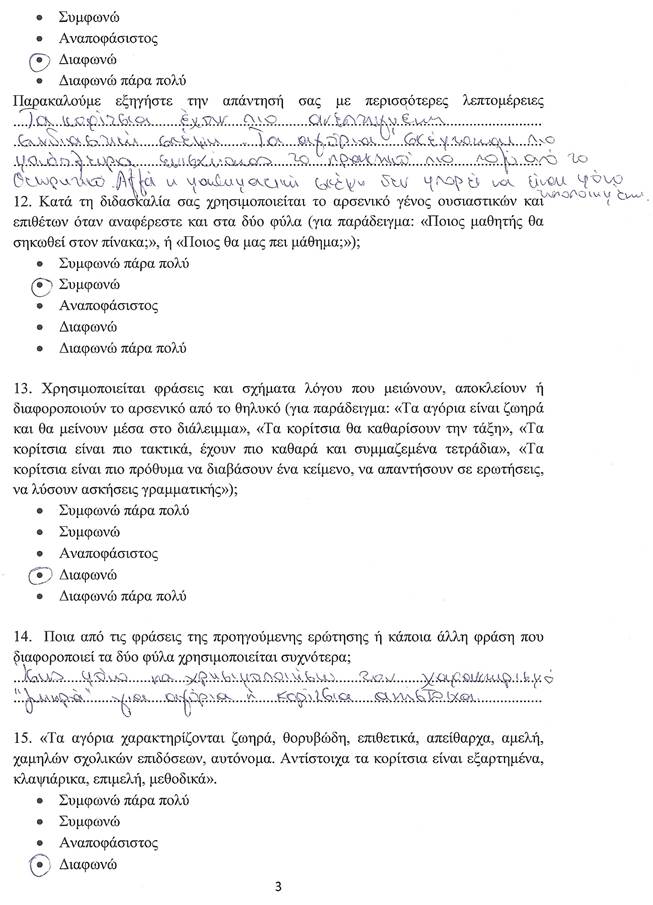 • Συμφωνώ
• Αναποφάσιστος
• Διαφωνώ
• Διαφωνώ πάρα πολύ
Παρακαλούμε εξηγήστε την απάντησή σας με περισσότερες λεπτομέρειες
Τα κορίτσια έχουν πιο ανεπτυγμένη
συνδιαστική σκέψη. Τα αγόρια σκέφτονται πιο
το πρακτικό πιο πολύ από το
θεωρητικό. Αλλά η μαθηματική σκέψη δεν μπορεί να είναι μόνο
12. Κατά τη διδασκαλία σας χρησιμοποιείται το αρσενικό γένος ουσιαστικών και
επιθέτων όταν αναφέρεστε και στα δύο φύλα (για παράδειγμα: «Ποιος μαθητής θα
σηκωθεί στον πίνακα;», ή «Ποιος θα μας πει μάθημα;»);
• Συμφωνώ πάρα πολύ
• Συμφωνώ
• Αναποφάσιστος
• Διαφωνώ
• Διαφωνώ πάρα πολύ
13. Χρησιμοποιείται φράσεις και σχήματα λόγου που μειώνουν, αποκλείουν ή
διαφοροποιούν το αρσενικό από το θηλυκό (για παράδειγμα: «Τα αγόρια είναι ζωηρά
και θα μείνουν μέσα στο διάλειμμα», «Τα κορίτσια θα καθαρίσουν την τάξη», «Τα
κορίτσια είναι πιο τακτικά, έχουν πιο καθαρά και συμμαζεμένα τετράδια», «Τα
κορίτσια είναι πιο πρόθυμα να διαβάσουν ένα κείμενο, να απαντήσουν σε ερωτήσεις,
να λύσουν ασκήσεις γραμματικής»);
• Συμφωνώ πάρα πολύ
• Συμφωνώ
• Αναποφάσιστος
• Διαφωνώ
• Διαφωνώ πάρα πολύ
14. Ποια από τις φράσεις της προηγούμενης ερώτησης ή κάποια άλλη φράση που
διαφοροποιεί τα δύο φύλα χρησιμοποιείται συχνότερα;
μόνο να χρησιμοποιήσω τον χαρακτηρισμό
"ζωηρά" για αγόρια ή κορίτσια αντίστοιχα
15. «Τα αγόρια χαρακτηρίζονται ζωηρά, θορυβώδη, επιθετικά, απείθαρχα, αμελή,
χαμηλών σχολικών επιδόσεων, αυτόνομα. Αντίστοιχα τα κορίτσια είναι εξαρτημένα,
κλαψιάρικα, επιμελή, μεθοδικά».
• Συμφωνώ πάρα πολύ
• Συμφωνώ
• Αναποφάσιστος
• Διαφωνώ
3